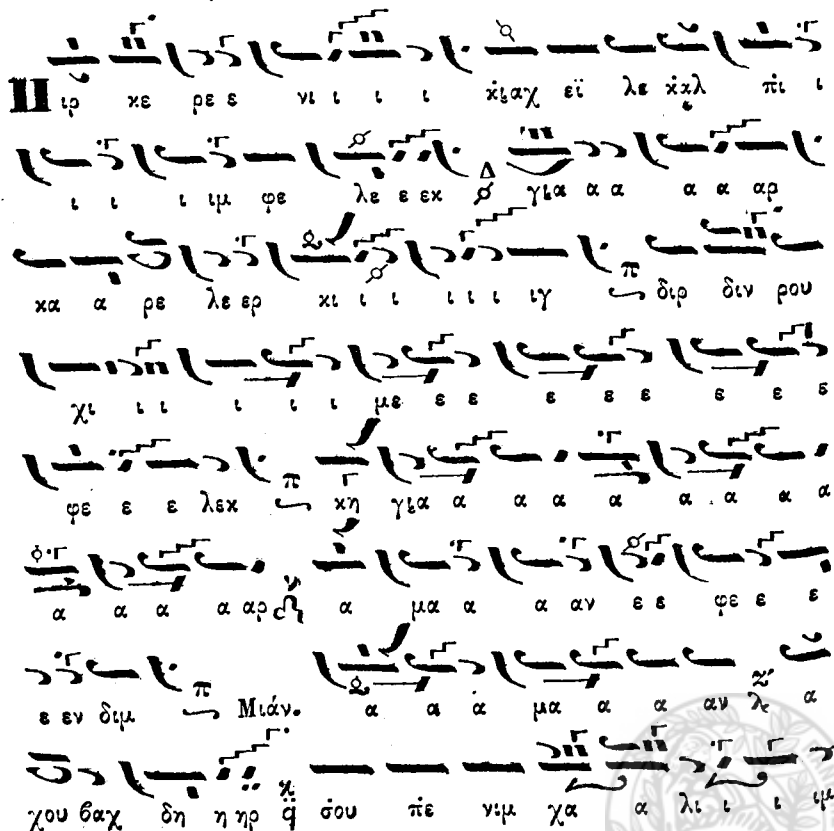 Πιρ κε ρε ε νι ι ι ι κ̇ι̤αχ εϊ λε κ̇κλ π̇ι ι
ι ι ι ιμ φε λε ε εκ Δ γι̤α α α α α αρ
κα α ρε λε ερ κι ι ι ι ι ι ιγ π διρ διν ρου
χι ι ι ι ι ι με ε ε ε ε ε ε ε ε
φε ε ε λεκ π κη γι̤α α α α α α α α α
α α α α αρ α μα α α αν ε ε φε ε ε
ε εν διμ π Μιάν. α α α μα α α αν λ α
χου βαχ δη η ηρ q̈ σ̇ου π̇ε νιμ χα α λι ι ι ιμ